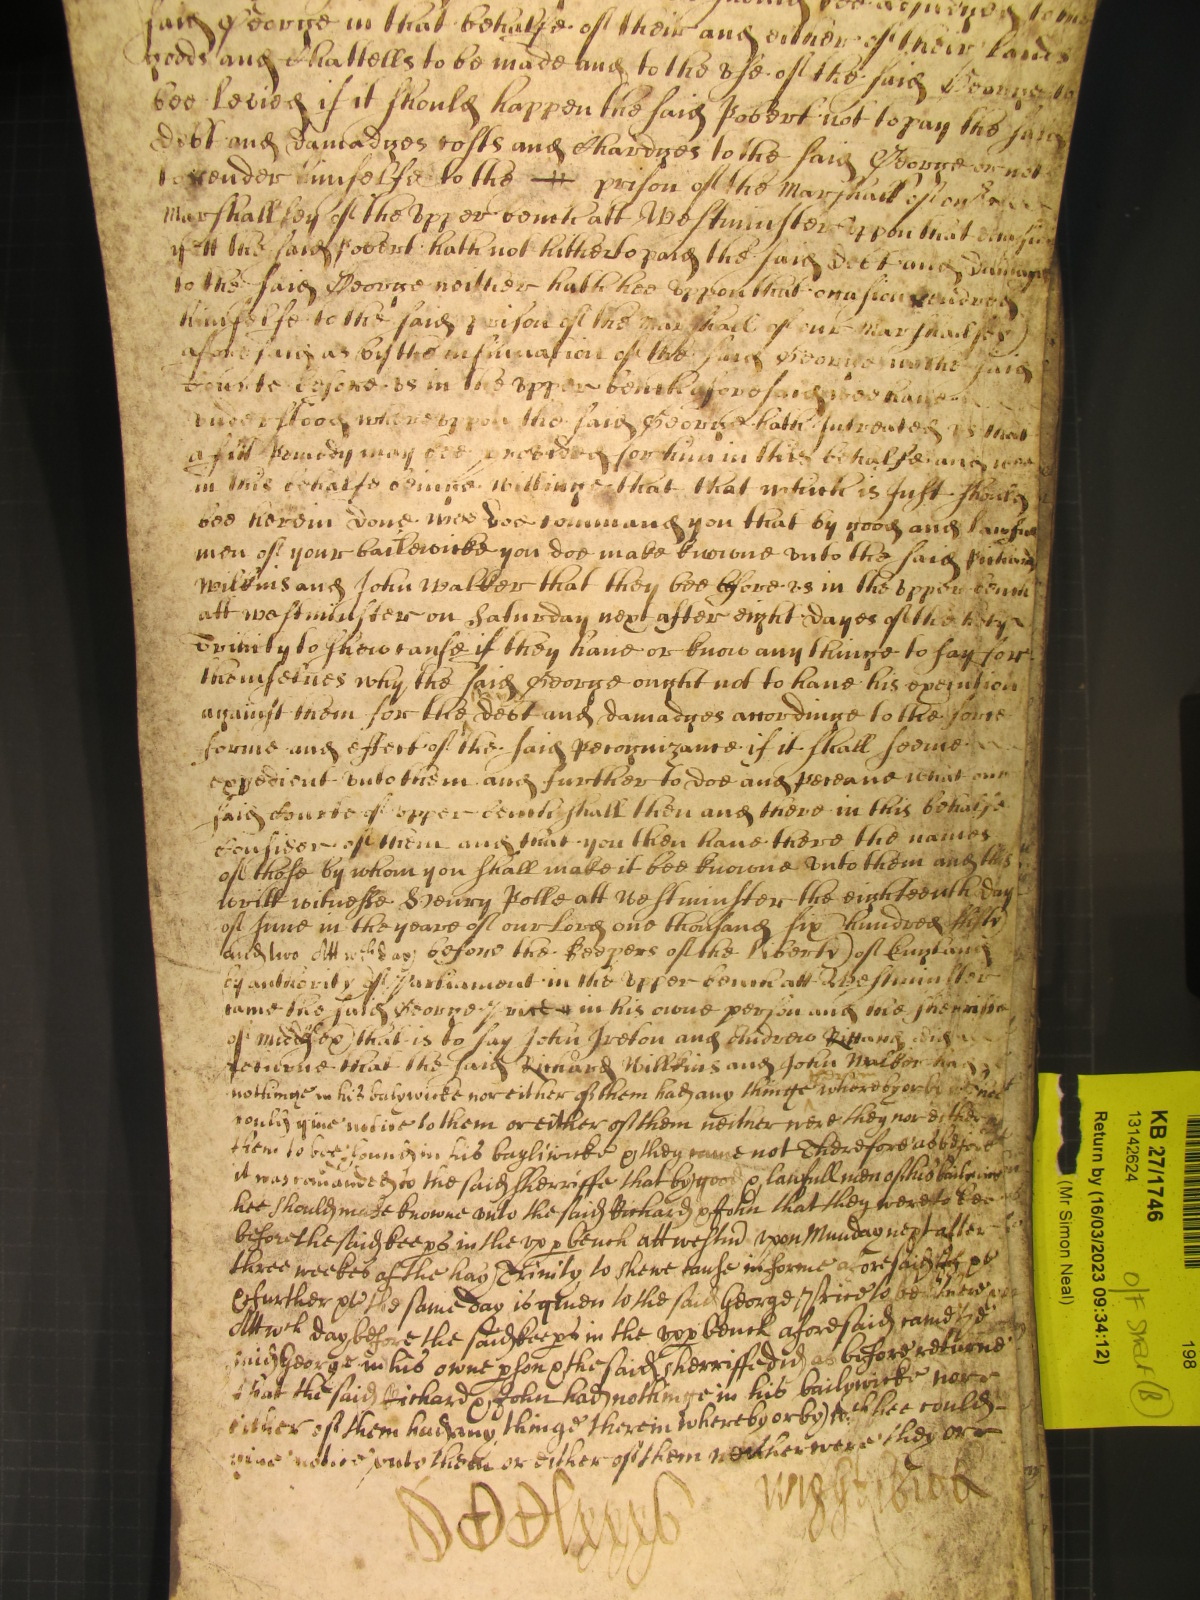 said George in that behalfe of their and either of their lands
goods and Chattells to be made and to the vse of the said George to
bee levied if it should happen the said Robert not to pay the said
debt and damadges costs and Chardges to the said George or not
to render himselfe to the prison of the Marshall of our
Marshallsey of the vpper bench att Westminster vppon that
yett the said Robert hath not hitherto paid the said debt and damages
to the said George neither hath hee vppon that occasion rendred
himselfe to the said prison of the Marshall of our Marshallsey
aforesaid as by the insinuation of the said George in the said
Courte before vs in the vpper bench aforesaid wee haue
vnderstood wherevppon the said George hath Intreated vs that
a fitt Remedy may bee provided for him in this behalfe and wee
in this behalfe beinge willinge that that which is Just should
bee herein done wee doe command you that by good and lawfull
men of your bailewicke you doe make knowne vnto the said Richard
Wilkins and John Walker that they bee before vs in the vpper bench
att westminster on Saturday next after eight dayes of the holy
Trinity to shew cause if they haue or know any thinge to say for
themselues why the said George ought not to haue his execution
against them for the debt and damadges accordinge to the force
forme and effect of the said Recognizance if it shall seeme
expedient vnto them and further to doe and Receaue what our
said Courte of vpper bench shall then and there in this behalfe
Consider of them and that you then haue there the names
of those by whom you shall make it bee knowne vnto them and this
writt witnesse Henry Rolle att Westminster the eighteenth day
of June in the yeare of our Lord one thousand six hundred fifty
and two Att wch day before the Keepers of the liberty of England
by authority of Parliament in the vpper bench att Westminster
came the said George Price in his owne person and the sherriffe
of Midd)sex that is to say John Ireton and Andrew
returne that the said Richard Willkins and John Walker had
nothinge in his bailywicke nor either of them had any thinge whereby or by
could giue notice to them or either of them neither were they nor either
them to bee found in his bayliwicke & they came not Therefore as before
it was comanded to the said sherriffe that by good & lawfull men of his bailywicke
hee should make knowne vnto the said Richard & John that they were to bee
before the said keeps in the vpp bench att westmr vpon Munday next after
three weekes of the holy Trinity to shewe cause in forme aforesaid
& further &c the same day is giuen to the said George Price to
Att wch day before the said keeps in the vpp bench aforesaid came the
said George in his owne pson & the said sherriffe did as before returne
that the said Richard & John had nothinge in his bailywicke nor
either of them had any thinge therein whereby or by wch hee could
giue notice vnto them or either of them neither were they or
Wightwick
KB 27/1746
13142624
Return by (16/03/2023 09:34:12)
(Mr Simon Neal)
198
O/F Shelf (B)